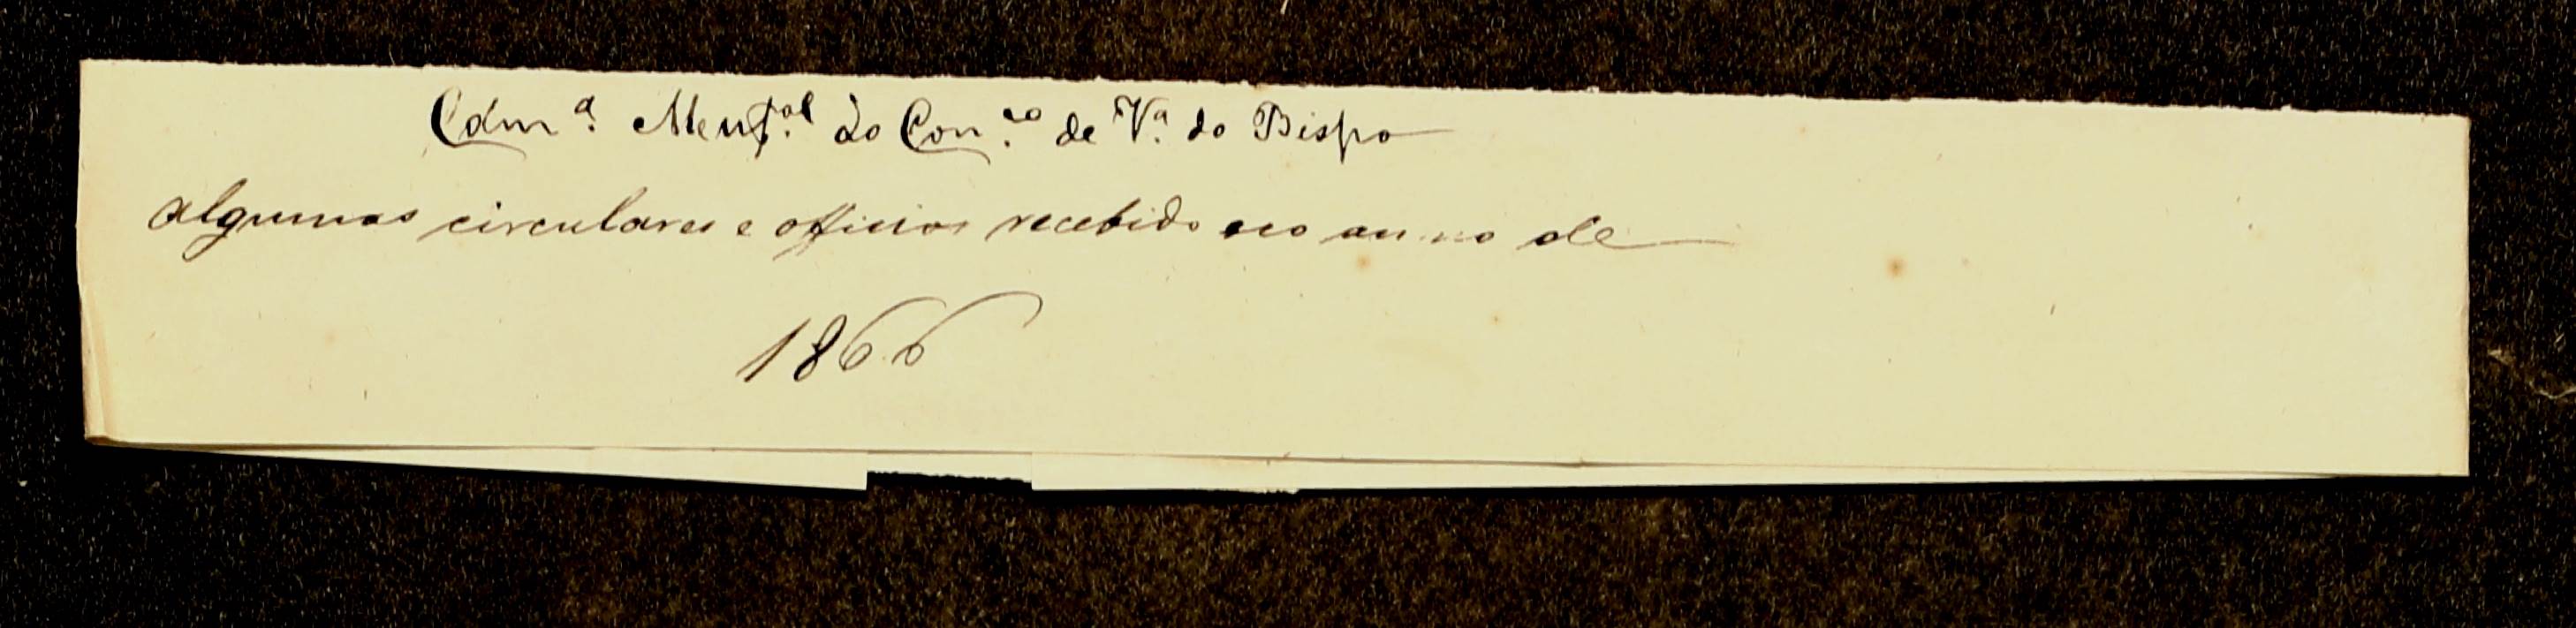 Cam.ª Mun.al do Con.co de V.ª do Bispo
Algumas circulares e officios recebido no anno de
1866